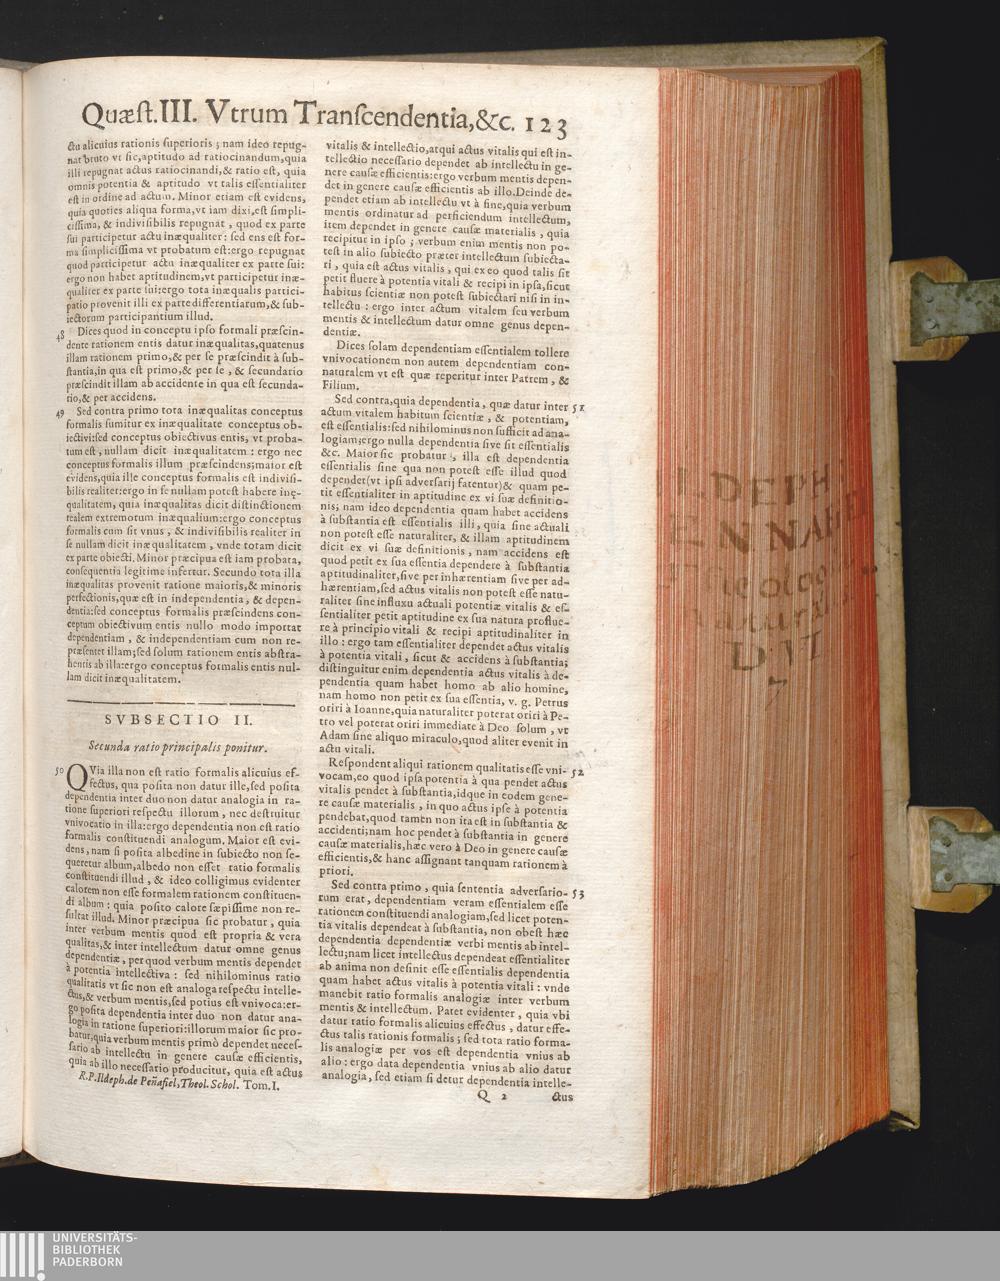 Quæſt. III. Vtrum Tranſcendentia, &c. 123
ctu alicuius rationis ſuperioris; nam ideo repug-
nat bruto vt ſic, aptitudo ad ratiocinandum, quia
illi repugnat actus ratiocinandi, & ratio eſt, quia
omnis potentia & aptitudo vt talis eſſentialiter
eſt in ordine ad actum. Minor etiam eſt evidens,
quia quoties aliqua forma, vt iam dixi, eſt ſimpli-
ciſſima, & indiviſibilis repugnat, quod ex parte
ſui participetur actu inæqualiter: ſed ens eſt for-
ma ſimpliciſſima vt probatum eſt: ergo repugnat
quod participetur actu inæqualiter ex parte ſui:
ergo non habet aptitudinem, vt participetur inæ-
qualiter ex parte ſui: ergo tota inæqualis partici-
patio provenit illi ex parte differentiarum, & ſub-
iectorum participantium illud.
48 Dices quod in conceptu ipſo formali præſcin-
dente rationem entis datur inæqualitas, quatenus
illam rationem primo, & per ſe præſcindit à ſub-
ſtantia, in qua eſt primo, & per ſe, & ſecundario
præſcindit illam ab accidente in qua eſt ſecunda-
rio, & per accidens.
49 Sed contra primo tota inæqualitas conceptus
formalis ſumitur ex inæqualitate conceptus ob-
iectivi: ſed conceptus obiectivus entis, vt proba-
tum eſt, nullam dicit inæqualitatem: ergo nec
conceptus formalis illum præſcindens; maior eſt
evidens, quia ille conceptus formalis eſt indiviſi-
bilis realiter: ergo in ſe nullam poteſt habere inę-
qualitatem, quia inæqualitas dicit diſtinctionem
realem extremorum inæqualium: ergo conceptus
formalis cum ſit vnus, & indiviſibilis realiter in
ſe nullam dicit inæqualitatem, vnde totam dicit
ex parte obiecti. Minor præcipua eſt iam probata,
conſequentia legitime infertur. Secundo tota illa
inæqualitas provenit ratione maioris, & minoris
perfectionis, quæ eſt in independentia, & depen-
dentia: ſed conceptus formalis præſcindens con-
ceptum obiectivum entis nullo modo importat
dependentiam, & independentiam cum non re-
præſentet illam; ſed ſolum rationem entis abſtra-
hentis ab illa: ergo conceptus formalis entis nul-
lam dicit inæqualitatem.
SVBSECTIO II.
Secunda ratio principalis ponitur.
50 QVia illa non eſt ratio formalis alicuius ef-
fectus, qua poſita non datur ille, ſed poſita
dependentia inter duo non datur analogia in ra-
tione ſuperiori reſpectu illorum, nec deſtruitur
vnivocatio in illa: ergo dependentia non eſt ratio
formalis conſtituendi analogum. Maior eſt evi-
dens, nam ſi poſita albedine in ſubiecto non ſe-
queretur album, albedo non eſſet ratio formalis
conſtituendi illud, & ideo colligimus evidenter
calorem non eſſe formalem rationem conſtituen-
di album: quia poſito calore ſæpiſſime non re-
ſultat illud. Minor præcipua ſic probatur, quia
inter verbum mentis quod eſt propria & vera
qualitas, & inter intellectum datur omne genus
dependentiæ, per quod verbum mentis dependet
à potentia intellectiva: ſed nihilominus ratio
qualitatis vt ſic non eſt analoga reſpectu intelle-
ctus, & verbum mentis, ſed potius eſt vnivoca: er-
go poſita dependentia inter duo non datur ana-
logia in ratione ſuperiori: illorum maior ſic pro-
batur, quia verbum mentis primò dependet neceſ-
ſario ab intellectu in genere cauſæ efficientis,
quia ab illo neceſſario producitur, quia eſt actus
R.P. Ildeph. de Peñafiel, Theol. Schol. Tom. I.
vitalis & intellectio, atqui actus vitalis qui eſt in-
tellectio neceſſario dependet ab intellectu in ge-
nere cauſæ efficientis: ergo verbum mentis depen-
det in genere cauſæ efficientis ab illo. Deinde de-
pendet etiam ab intellectu vt à fine, quia verbum
mentis ordinatur ad perficiendum intellectum,
item dependet in genere cauſæ materialis, quia
recipitur in ipſo; verbum enim mentis non po-
teſt in alio ſubiecto præter intellectum ſubiecta-
ri, quia eſt actus vitalis, qui ex eo quod talis ſit
petit fluere à potentia vitali & recipi in ipſa, ſicut
habitus ſcientiæ non poteſt ſubiectari niſi in in-
tellectu: ergo inter actum vitalem ſeu verbum
mentis & intellectum datur omne genus depen-
dentiæ.
Dices ſolam dependentiam eſſentialem tollere
vnivocationem non autem dependentiam con-
naturalem vt eſt quæ reperitur inter Patrem, &
Filium.
Sed contra, quia dependentia, quæ datur inter 51
actum vitalem habitum ſcientiæ, & potentiam,
eſt eſſentialis: ſed nihilominus non ſufficit ad ana-
logiam; ergo nulla dependentia ſive ſit eſſentialis
&c. Maior ſic probatur, illa eſt dependentia
eſſentialis ſine qua non poteſt eſſe illud quod
dependet (vt ipſi adverſarij fatentur) & quam pe-
tit eſſentialiter in aptitudine ex vi ſuæ definitio-
nis; nam ideo dependentia quam habet accidens
à ſubſtantia eſt eſſentialis illi, quia ſine actuali
non poteſt eſſe naturaliter, & illam aptitudinem
dicit ex vi ſuæ definitionis, nam accidens eſt
quod petit ex ſua eſſentia dependere à ſubſtantia
aptitudinaliter, ſive per inhærentiam ſive per ad-
hærentiam, ſed actus vitalis non poteſt eſſe natu-
raliter ſine influxu actuali potentiæ vitalis & eſ-
ſentialiter petit aptitudine ex ſua natura proflue-
re à principio vitali & recipi aptitudinaliter in
illo: ergo tam eſſentialiter dependet actus vitalis
à potentia vitali, ſicut & accidens à ſubſtantia;
diſtinguitur enim dependentia actus vitalis à de-
pendentia quam habet homo ab alio homine,
nam homo non petit ex ſua eſſentia, v. g. Petrus
oriri à Ioanne, quia naturaliter poterat oriri à Pe-
tro vel poterat oriri immediate à Deo ſolum, vt
Adam ſine aliquo miraculo, quod aliter evenit in
actu vitali.
Reſpondent aliqui rationem qualitatis eſſe vni- 52
vocam, eo quod ipſa potentia à qua pendet actus
vitalis pendet à ſubſtantia, idque in eodem gene-
re cauſæ materialis, in quo actus ipſe à potentia
pendebat, quod tamen non ita eſt in ſubſtantia &
accidenti; nam hoc pendet à ſubſtantia in genere
cauſæ materialis, hæc vero à Deo in genere cauſæ
efficientis, & hanc aſſignant tanquam rationem à
priori.
Sed contra primo, quia ſententia adverſario- 53
rum erat, dependentiam veram eſſentialem eſſe
rationem conſtituendi analogiam, ſed licet poten-
tia vitalis dependeat à ſubſtantia, non obeſt hæc
dependentia dependentiæ verbi mentis ab intel-
lectu; nam licet intellectus dependeat eſſentialiter
ab anima non deſinit eſſe eſſentialis dependentia
quam habet actus vitalis à potentia vitali: vnde
manebit ratio formalis analogiæ inter verbum
mentis & intellectum. Patet evidenter, quia vbi
datur ratio formalis alicuius effectus, datur effe-
ctus talis rationis formalis; ſed tota ratio forma-
lis analogiæ per vos eſt dependentia vnius ab
alio: ergo data dependentia vnius ab alio datur
analogia, ſed etiam ſi detur dependentia intelle-
Q 2 ctus
UNIVERSITÄTS-
BIBLIOTHEK
PADERBORN